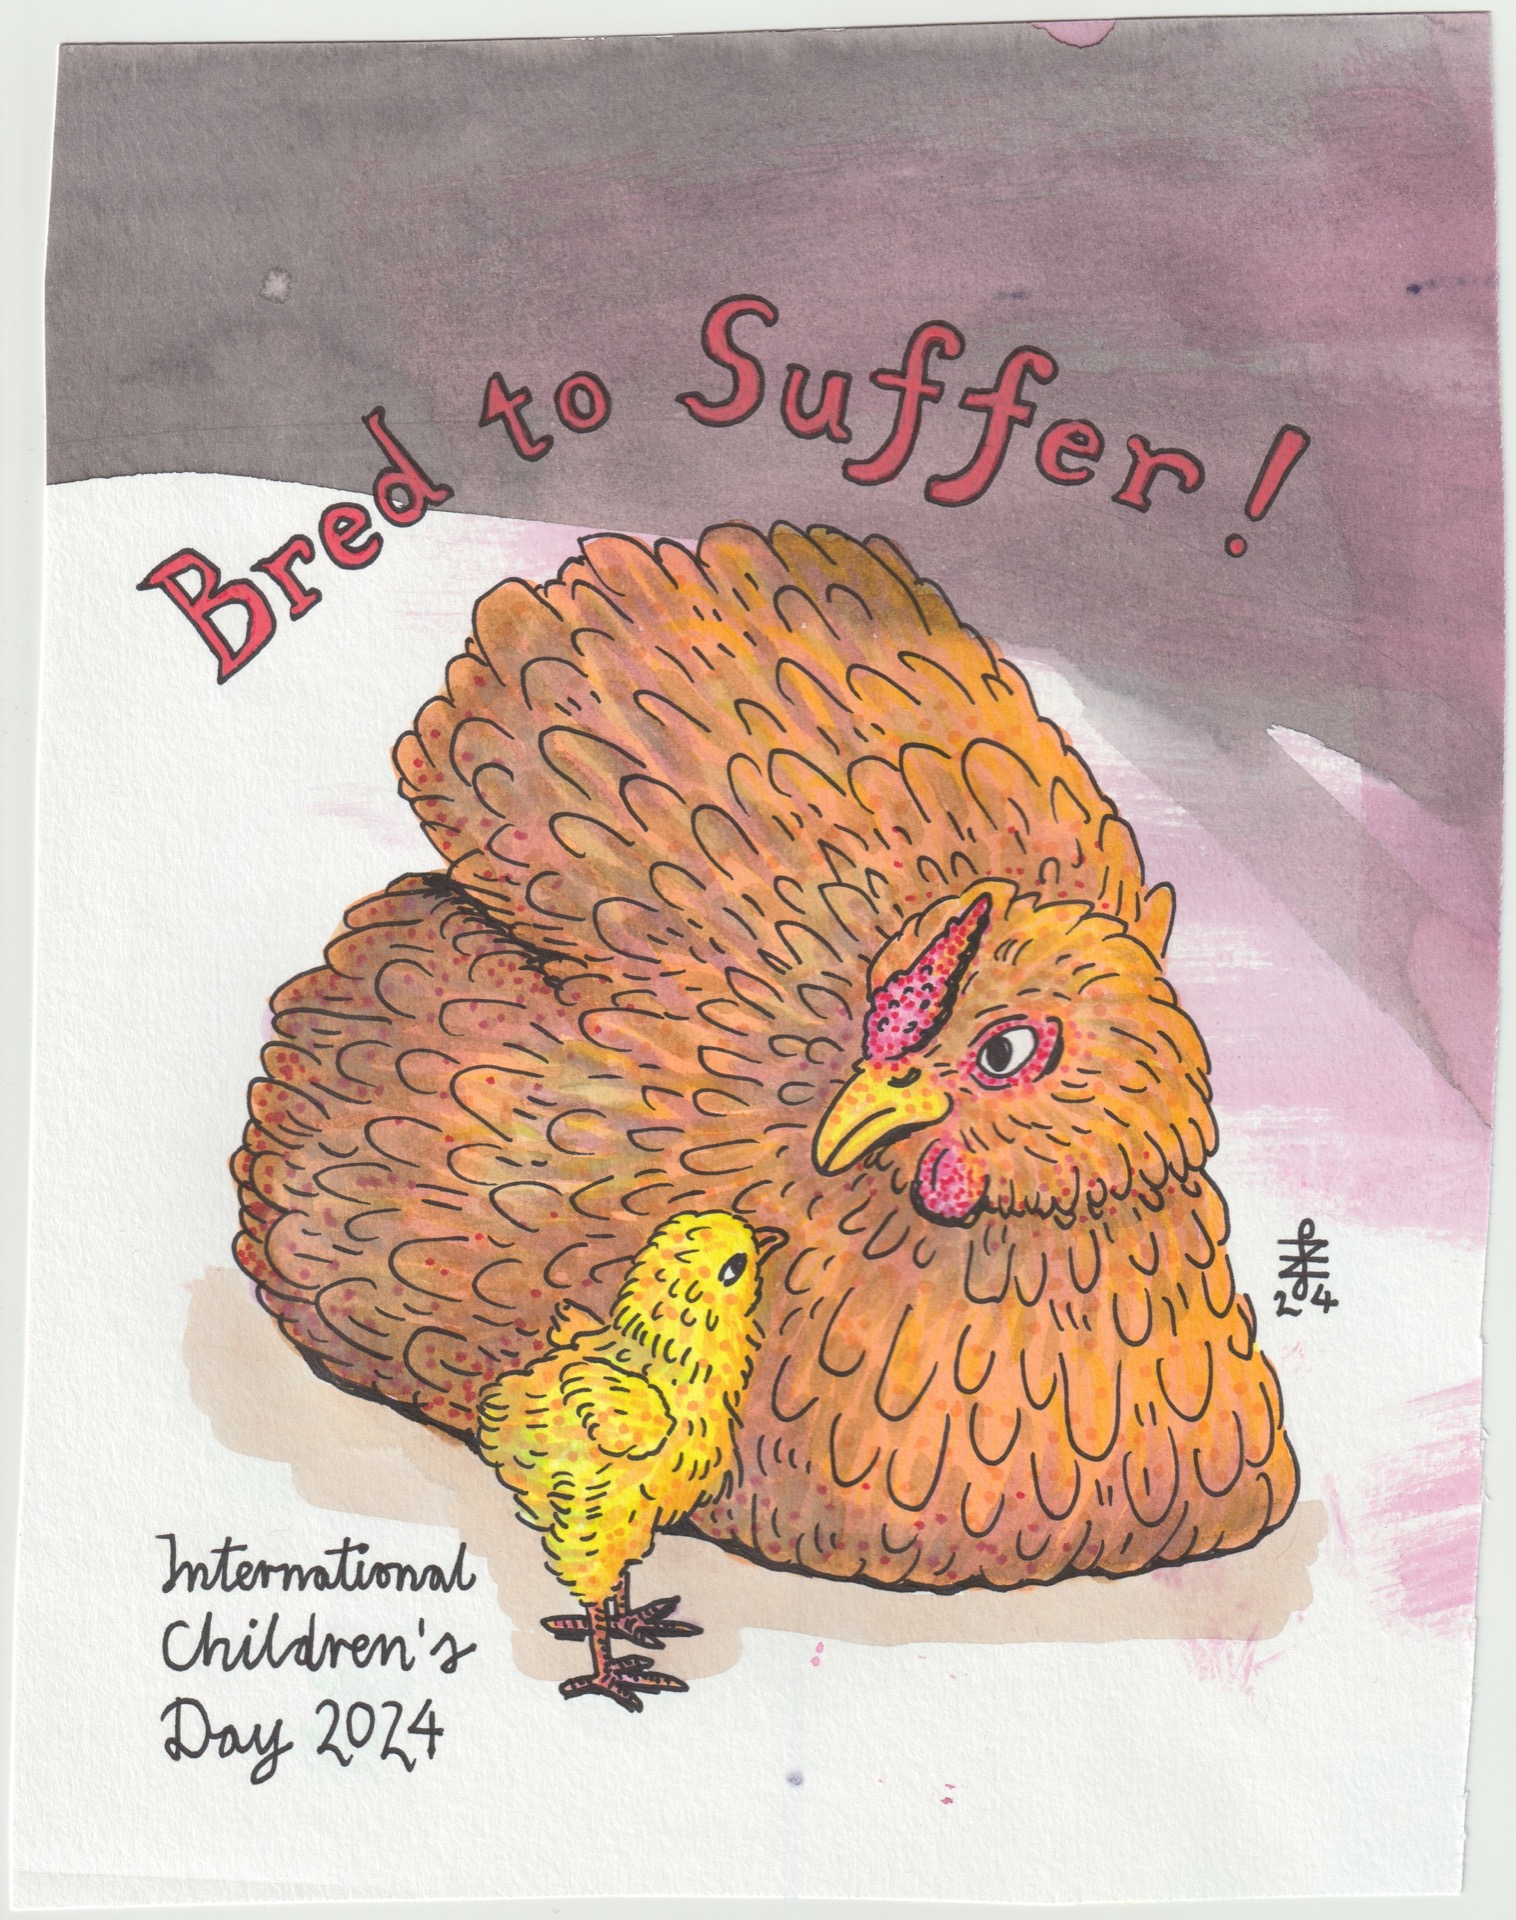 Bred to Suffer!
24
International
Children's
Day 2024